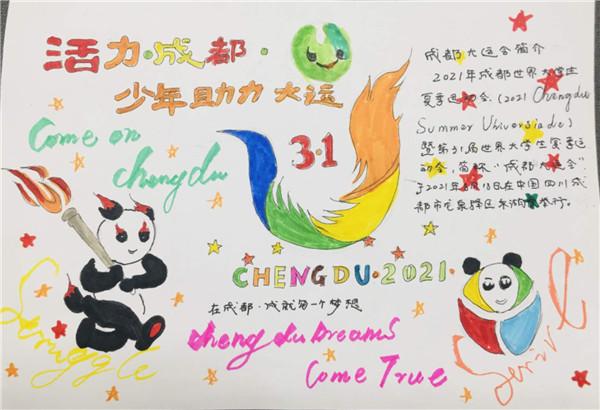 活力·成都·
少年助力大运
Come on
Chengdu
3·1
成都大运会简介
2021年成都世界大学生
夏季运动会（2021 Chengdu
Summer Universiade）
暨第31届世界大学生夏季运
动会，简称“成都大运会”
于2021年8月18日在中国四川成
都市龙泉驿区东湖举行。
CHENGDU·2021·
在成都·成就每一个梦想
Chengdu Dreams
Come True
Struggle